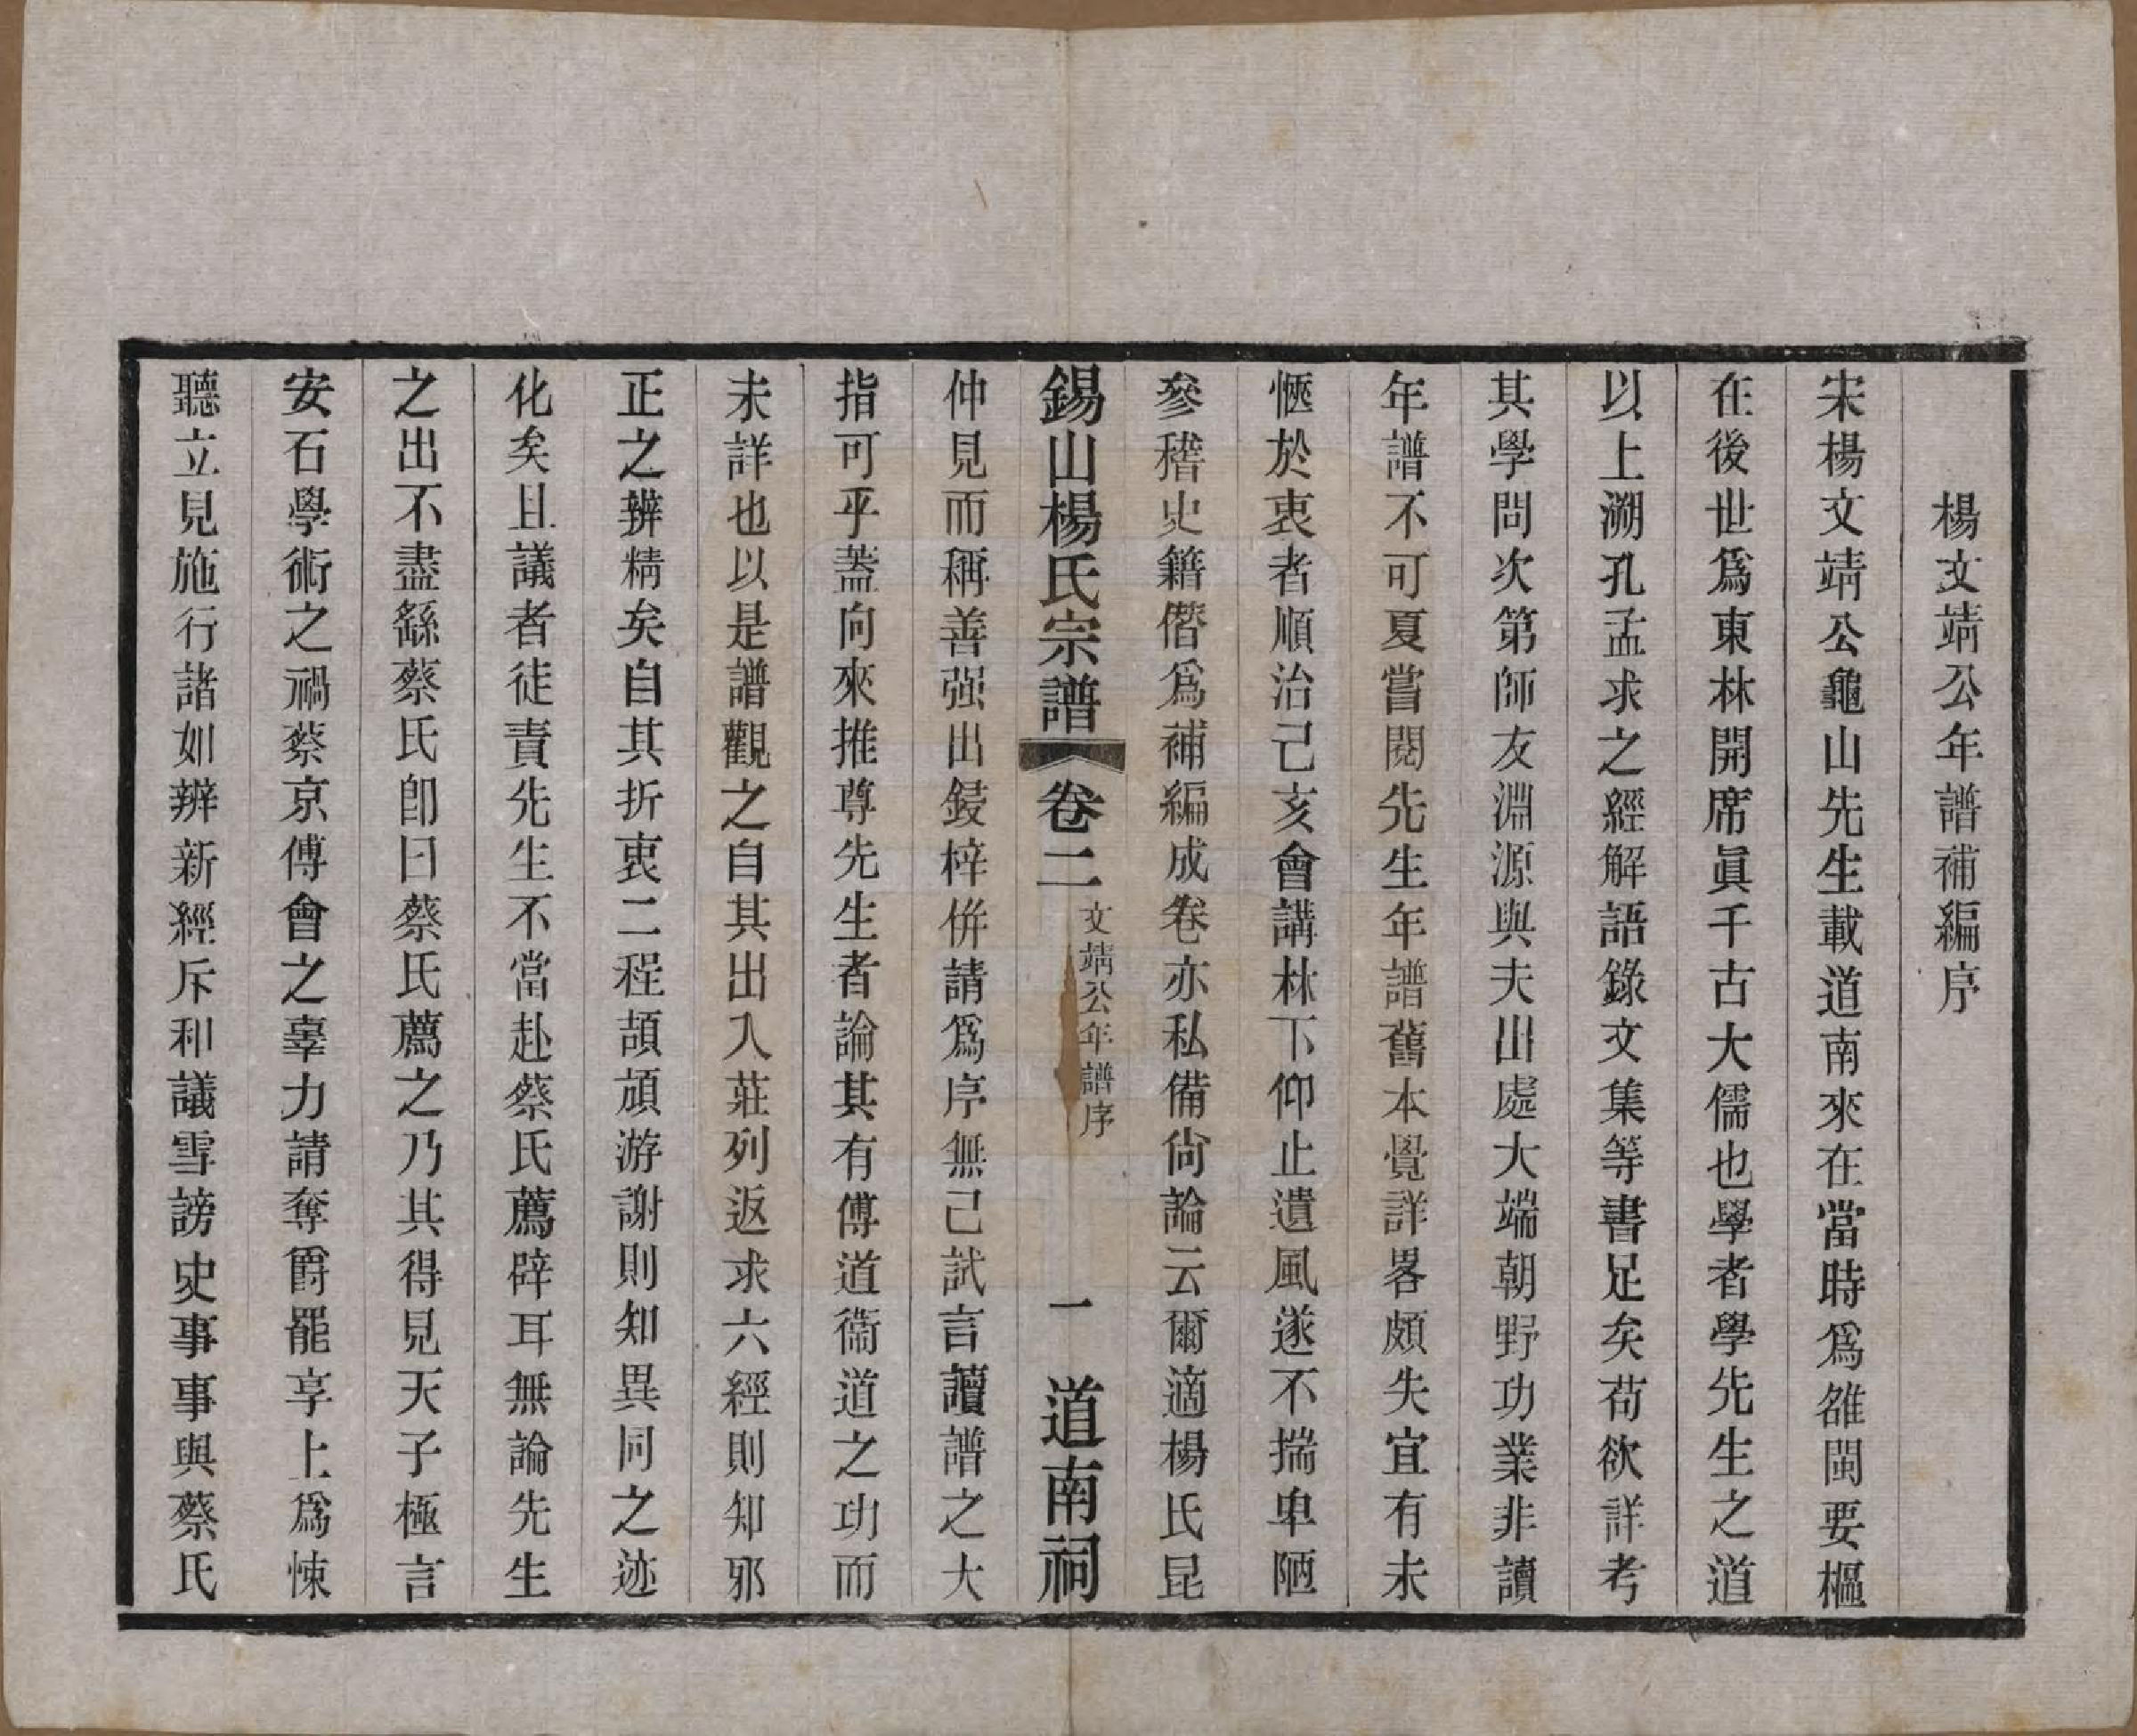 楊文靖公年譜補編序
宋楊文靖公龜山先生載道南來在當時爲雒閩要樞
在後世爲東林開席眞千古大儒也學者學先生之道
以上溯孔孟求之經解語錄文集等書足矣茍欲詳考
其學問次第師友淵源與夫出處大端朝野功業非讀
年譜不可夏嘗閱先生年譜舊本覺詳畧頗失宜有未
愜於衷者順治己亥會講林下仰止遺風遂不揣卑陋
參稽史籍僭爲補編成卷亦私備尙論云爾適楊氏昆
錫山楊氏宗譜 卷二 文靖公年譜序 一 道南祠
仲見而稱善强出鋟梓併請爲序無已試言讀譜之大
指可乎蓋向來推尊先生者論其有傳道衞道之功而
未詳也以是譜觀之自其出入莊列返求六經則知邪
正之辨精矣自其折衷二程頡頏游謝則知異同之迹
化矣且議者徒責先生不當赴蔡氏薦辟耳無論先生
之出不盡繇蔡氏卽曰蔡氏薦之乃其得見天子極言
安石學術之禍蔡京傅會之辜力請奪爵罷享上爲悚
聽立見施行諸如辨新經斥和議雪謗史事事與蔡氏